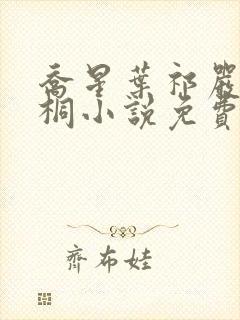 喬星葉祁嚴
桐小說免費
齊布娃